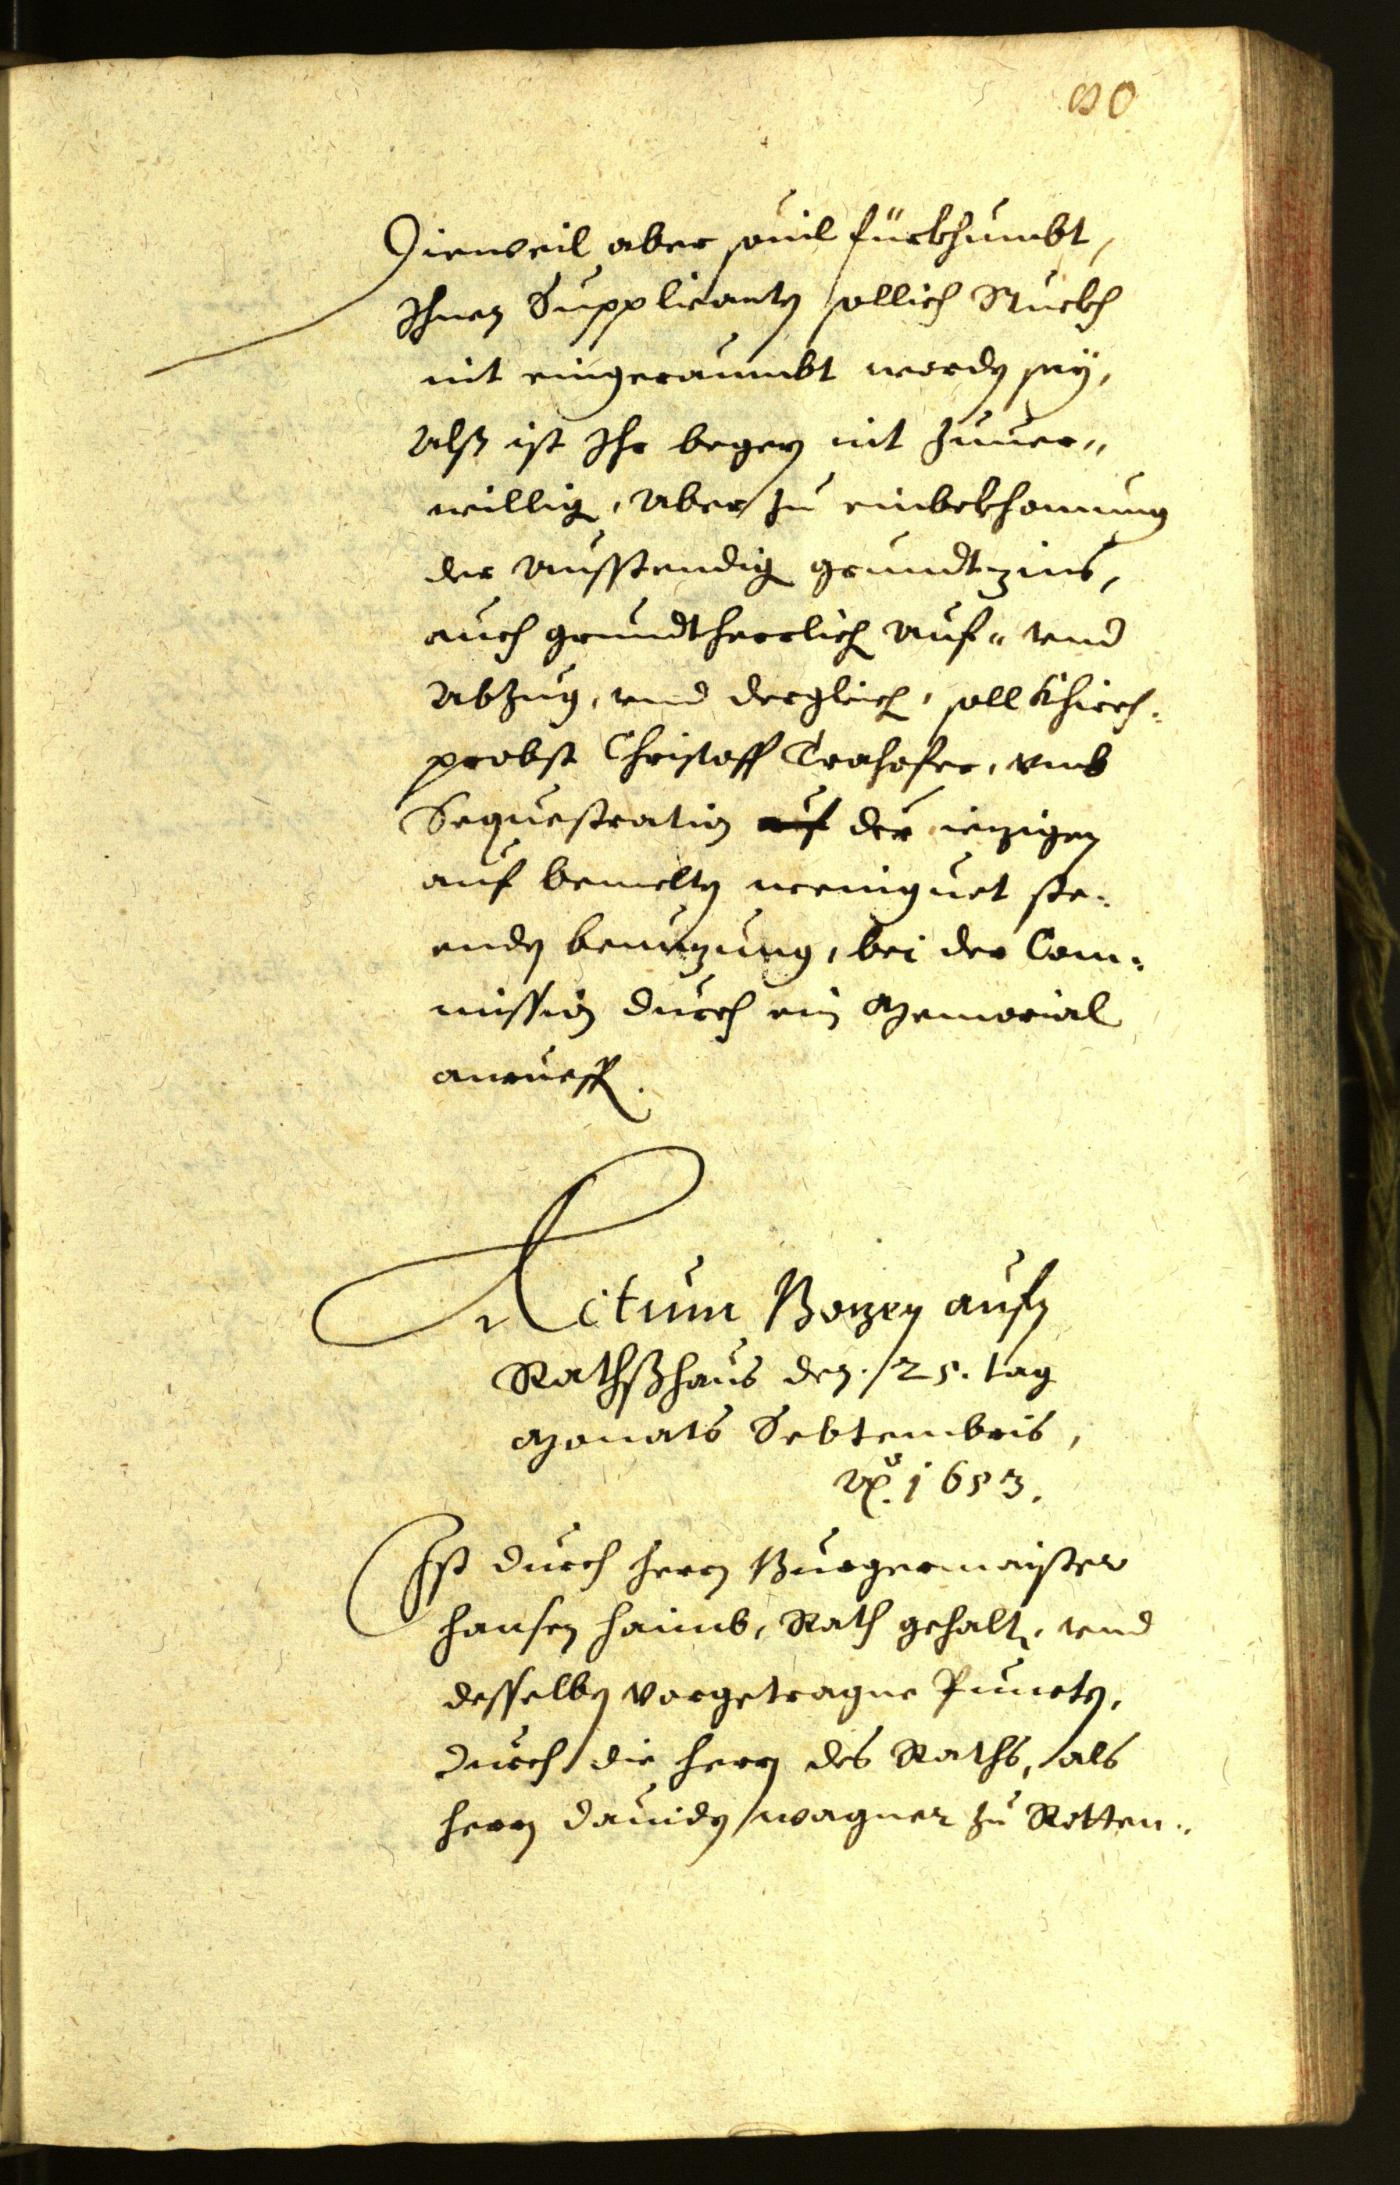 80
Dieweil aber souil fürkhumbt,
Ihnen Supplicanten sollich Stuckh
nit eingeraumbt worden sey,
Alß ist Ihr begern nit zuuer„
willigen, Aber zu einbekhomung
der Ausstendigen grundtzins,
auch grundtherrlichen Auf„ vnd
Abzug, vnd dergleichen, soll Khirch„
probst Christoff Trahofer, vmb
Sequestration der iezigen
auf bemelten ste„
enden benuzung, bei der Com„
mission durch ein Memorial
anrueffen.
Actum Bozen aufn
Rathßhaus den 25. tag
Monats Sebtembris,
Ao. 1653.
Ist durch herrn Burgermaister
Hansen Haimb, Rath gehalten, vnd
desselben vorgetragne Puncten,
durch die herrn des Raths, als
herrn Dauiden Wagner zu Rotten„